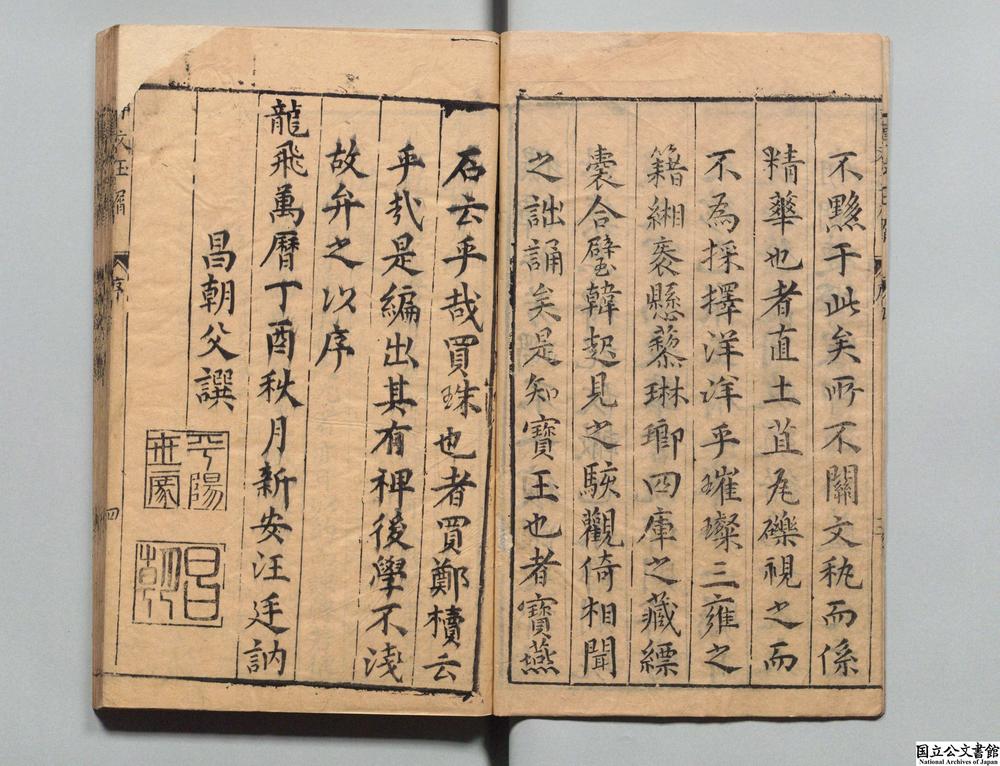 不黦于此矣所不關文秇而係
精華也者直土苴瓦礫視之而
不為採擇洋洋乎璀璨三雍之
籍緗袠懸藜琳瑯四庫之藏縹
囊合璧韓起見之駭觀倚相聞
之詘誦矣是知寶玉也者寶燕
石云乎哉買珠也者買鄭櫝云
乎哉是編出其有裨後學不淺
故弁之以序
龍飛萬曆丁酉秋月新安汪廷訥
昌朝父譔
平陽世家
昌朝
序
四
國立公文書館
National Archives of Japan